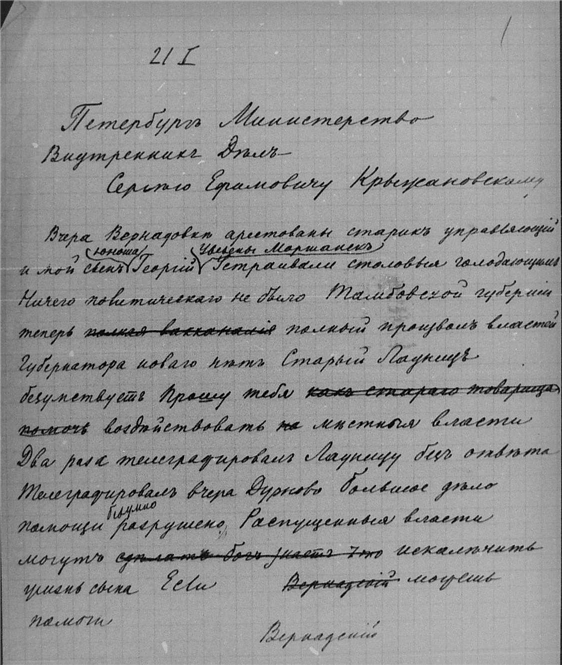 1
21 I
Петербургъ Министерство
Внутреннихъ Дѣлъ
Сергѣю Ефимовичу Крыжановскому
Вчера Вернадовкѣ арестованы старикъ управляющій
юноша Увезены Моршанскъ
и мой сынъ Георгій Устраивали столовыя голодающимъ
Ничего политическаго не было Тамбовской губерніи
теперь полная вакханалія полный произволъ властей
Губернатора новаго нѣтъ Старый Лауницъ
безумствуетъ Прошу тебя какъ стараго товарища
помочь воздѣйствовать на мѣстныя власти
Два раза телеграфировалъ Лауницу безъ отвѣта
Телеграфировалъ вчера Дурново Большое дѣло
безумно
помощи разрушено Распущенныя власти
могутъ сдѣлать богъ знаетъ что искалѣчить
жизнь сына Если Вернадскій можешь
помоги
Вернадскій